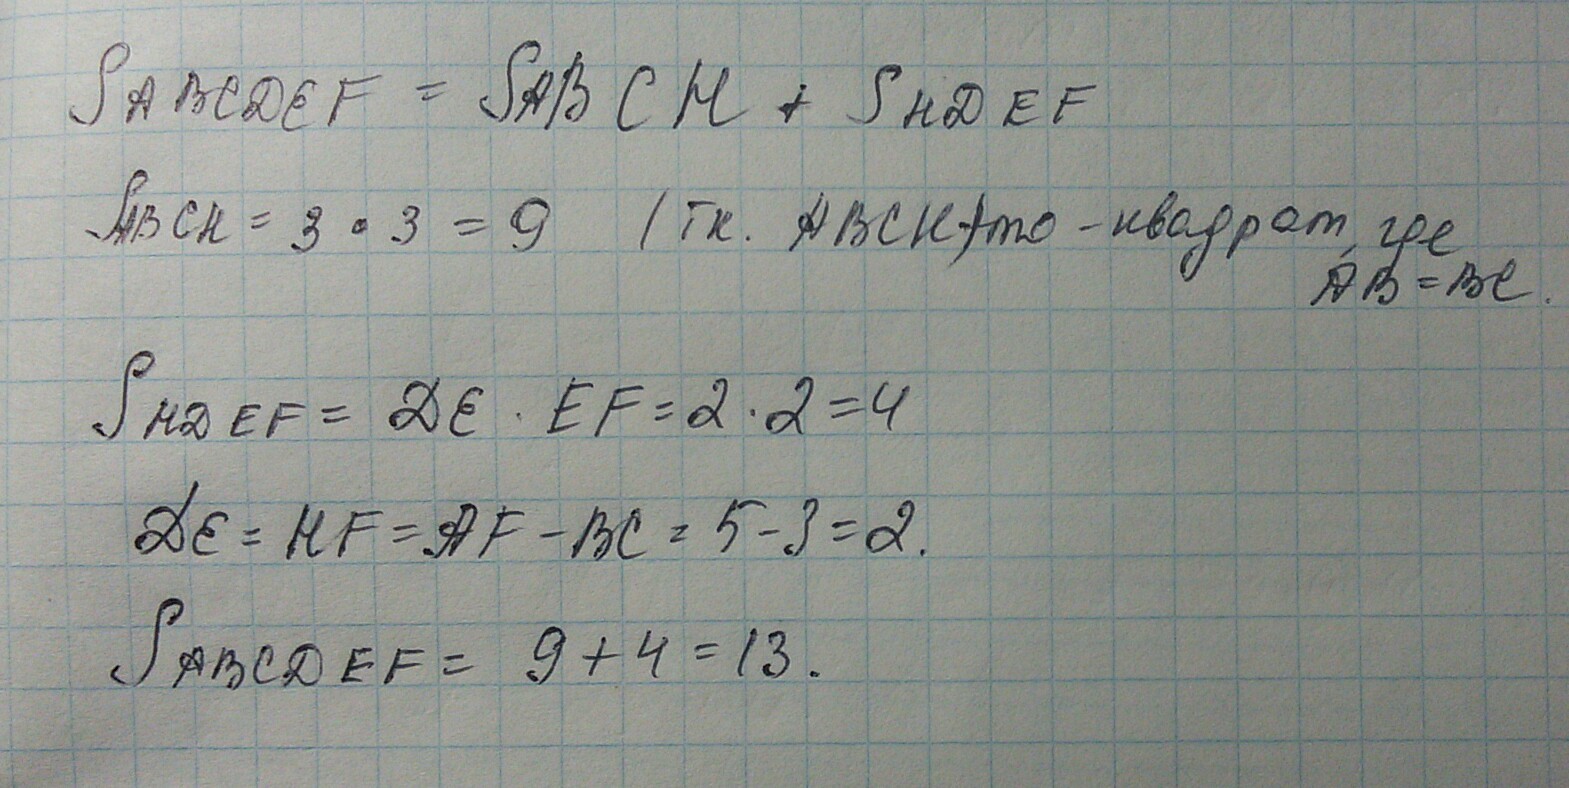 S ABCDEF = S ABCH + S HDEF
S ABCH = 3 • 3 = 9 (тк. ABCH) то - квадрат, где
AB = BC.
S HDEF = DE · EF = 2 · 2 = 4
DE = HF = AF - BC = 5 - 3 = 2.
S ABCDEF = 9 + 4 = 13.